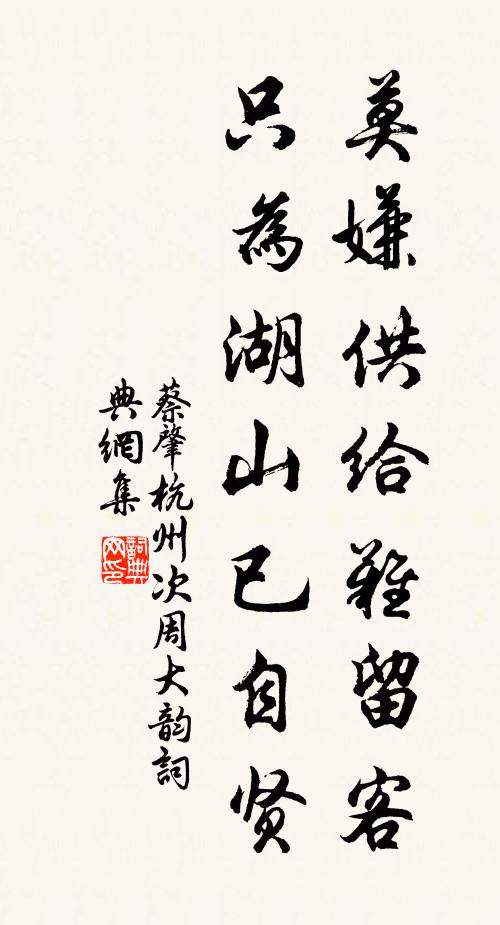 莫嫌供给難留客
只為湖山已自贤
蔡肇杭州次周大韵詞
典網集
詞典網印